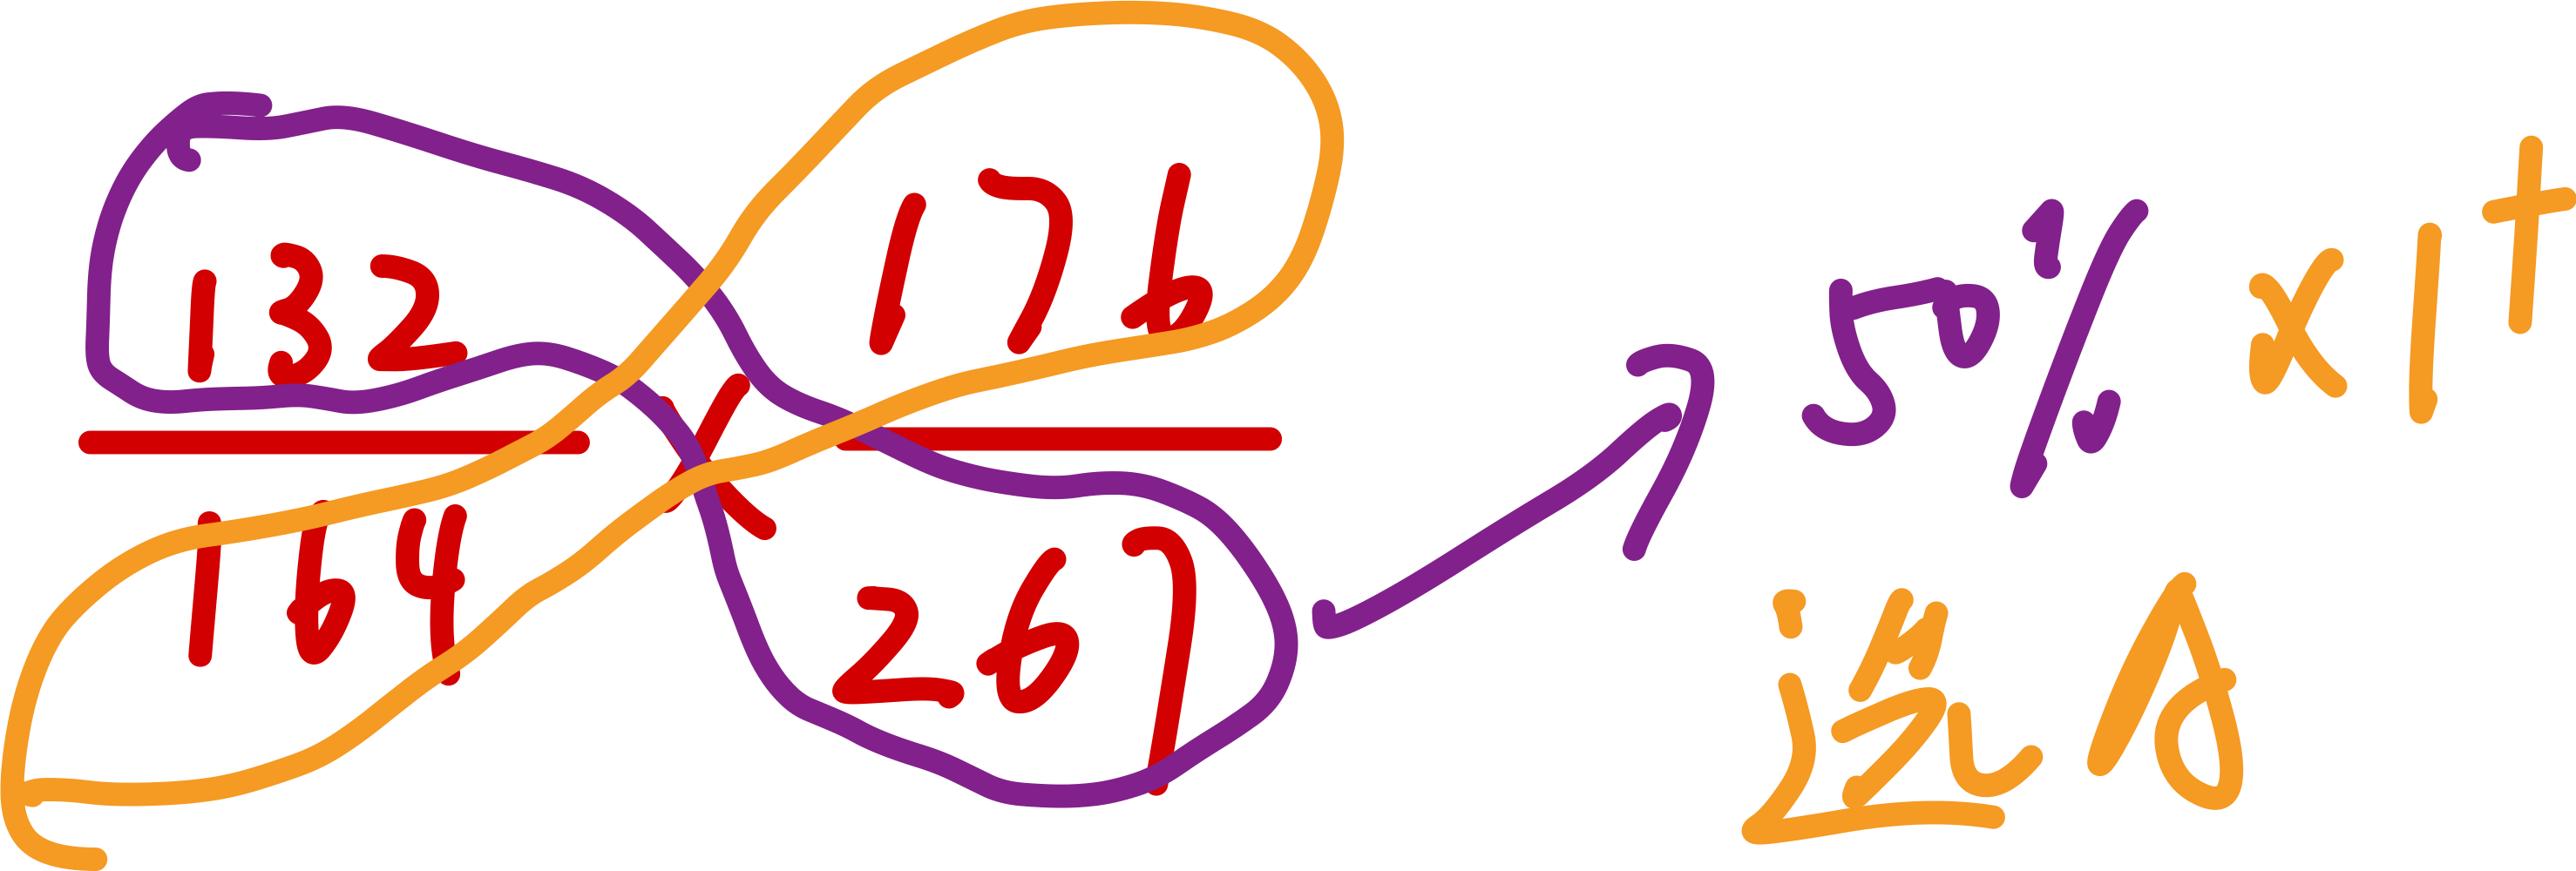 132/164 × 176/267
50% × 1⁺
选A